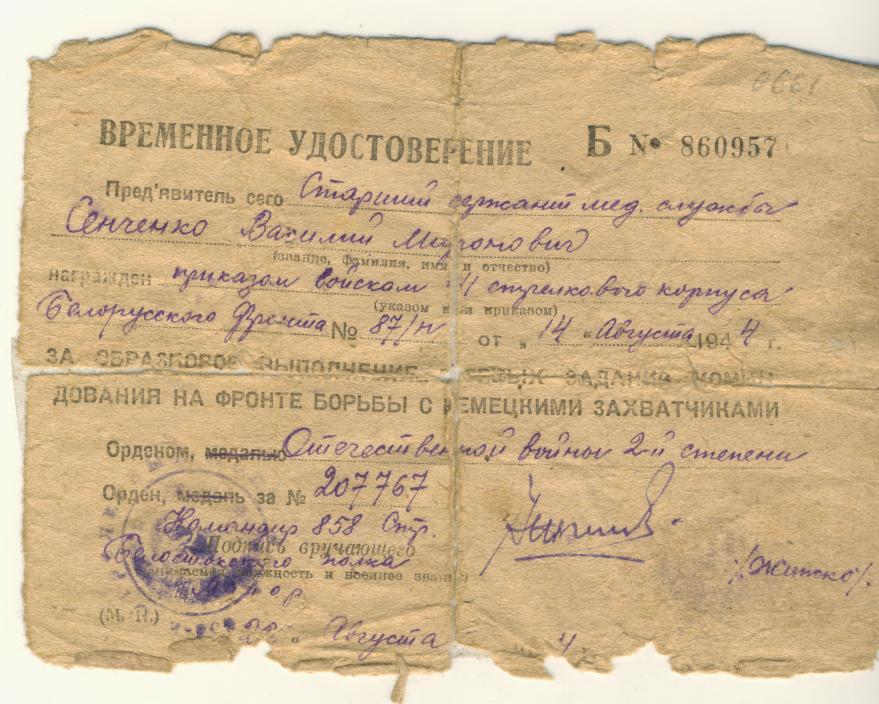 0661
ВРЕМЕННОЕ УДОСТОВЕРЕНИЕ Б № 860957
Пред'явитель сего Старший сержант мед. службы
Сенченко Василий Миронович
(звание, фамилия, имя и отчество)
награжден приказом войскам 41 стрелкового корпуса
(указом или приказом)
Белорусского Фронта № 87/н от „14" Августа 1944 г.
ЗА ОБРАЗЦОВОЕ ВЫПОЛНЕНИЕ БОЕВЫХ ЗАДАНИЙ КОМАН
ДОВАНИЯ НА ФРОНТЕ БОРЬБЫ С НЕМЕЦКИМИ ЗАХВАТЧИКАМИ
Орденом, медалью Отечественной войны 2-й степени
Орден, медаль за № 207767
Командир 858 Стр.
Подпись вручающего
Белостокского полка
должность и военное звание)
Майор
(М. П.)
Августа 4